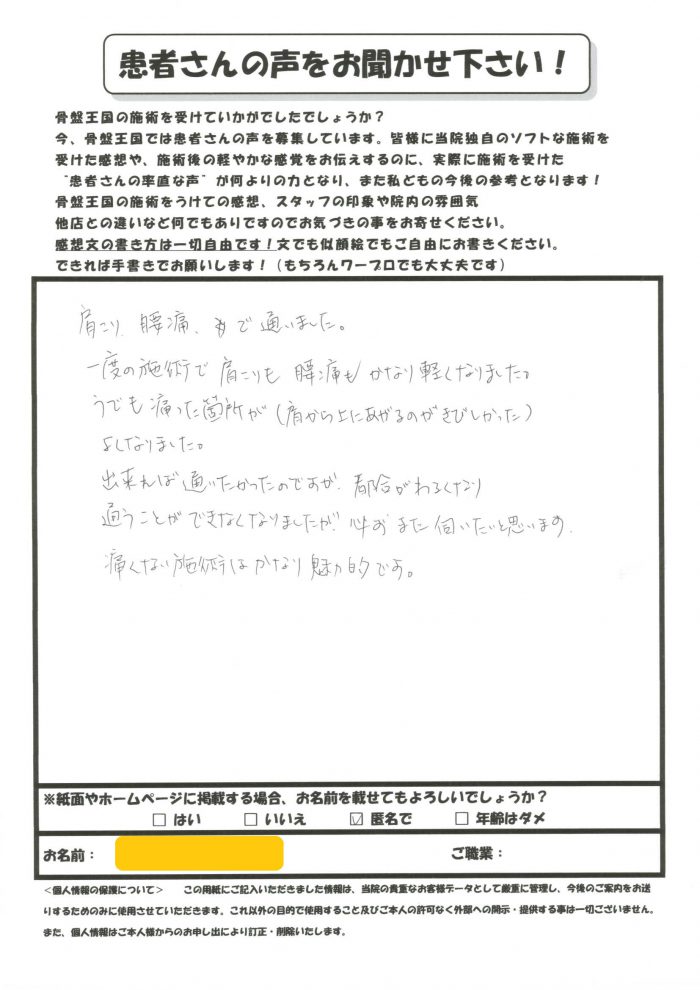 患者さんの声をお聞かせ下さい！
骨盤王国の施術を受けていかがでしたでしょうか？
今、骨盤王国では患者さんの声を募集しています。皆様に当院独自のソフトな施術を
受けた感想や、施術後の軽やかな感覚をお伝えするのに、実際に施術を受けた
“患者さんの率直な声”が何よりの力となり、また私どもの今後の参考となります！
骨盤王国の施術をうけての感想、スタッフの印象や院内の雰囲気
他店との違いなど何でもありですのでお気づきの事をお寄せください。
感想文の書き方は一切自由です！文でも似顔絵でもご自由にお書きください。
できれば手書きでお願いします！（もちろんワープロでも大丈夫です）
肩こり、腰痛、で通いました。
一度の施術で肩こりも腰痛もかなり軽くなりました。
うでも痛った箇所が（肩から上にあがるのがきびしかった）
よくなりました。
出来れば通いたかったのですが、都合がわるくなり
通うことができなくなりましたが、必ずまた伺いたいと思います。
痛くない施術はかなり魅力的です。
※紙面やホームページに掲載する場合、お名前を載せてもよろしいでしょうか？
□ はい □ いいえ ☑ 匿名で □ 年齢はダメ
お名前： ご職業：
＜個人情報の保護について＞ この用紙にご記入いただきました情報は、当院の貴重なお客様データとして厳重に管理し、今後のご案内をお送
りするためのみに使用させていただきます。これ以外の目的で使用すること及びご本人の許可なく外部への開示・提供する事は一切ございません。
また、個人情報はご本人様からのお申し出により訂正・削除いたします。